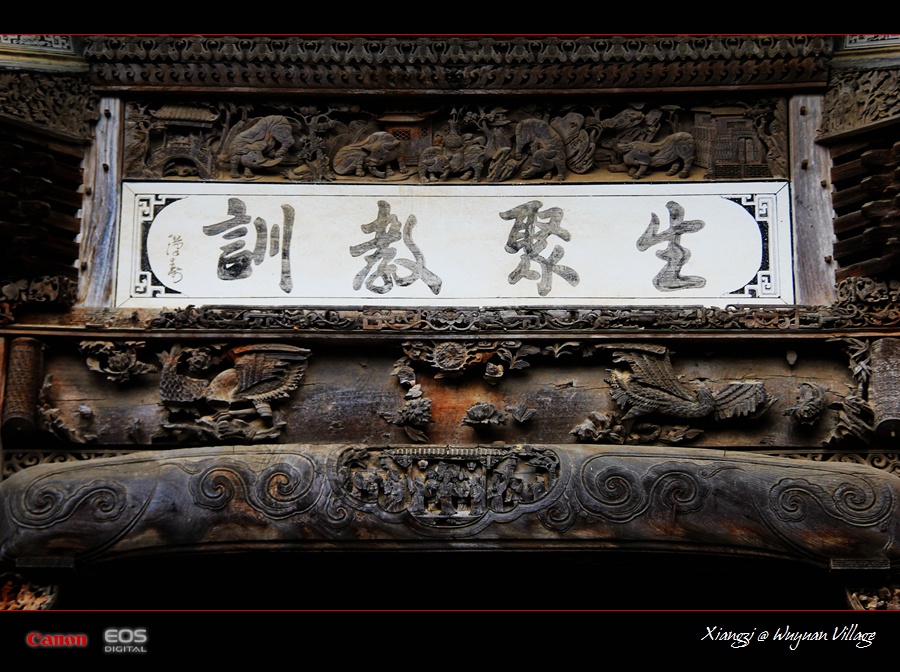 生聚教訓
Canon
EOS
DIGITAL
Xiangzi @ Wuyuan Village